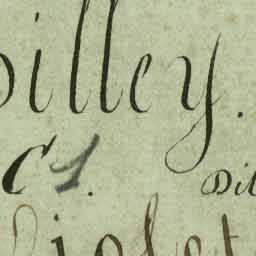 illey.
C 1.
Dil
iolet